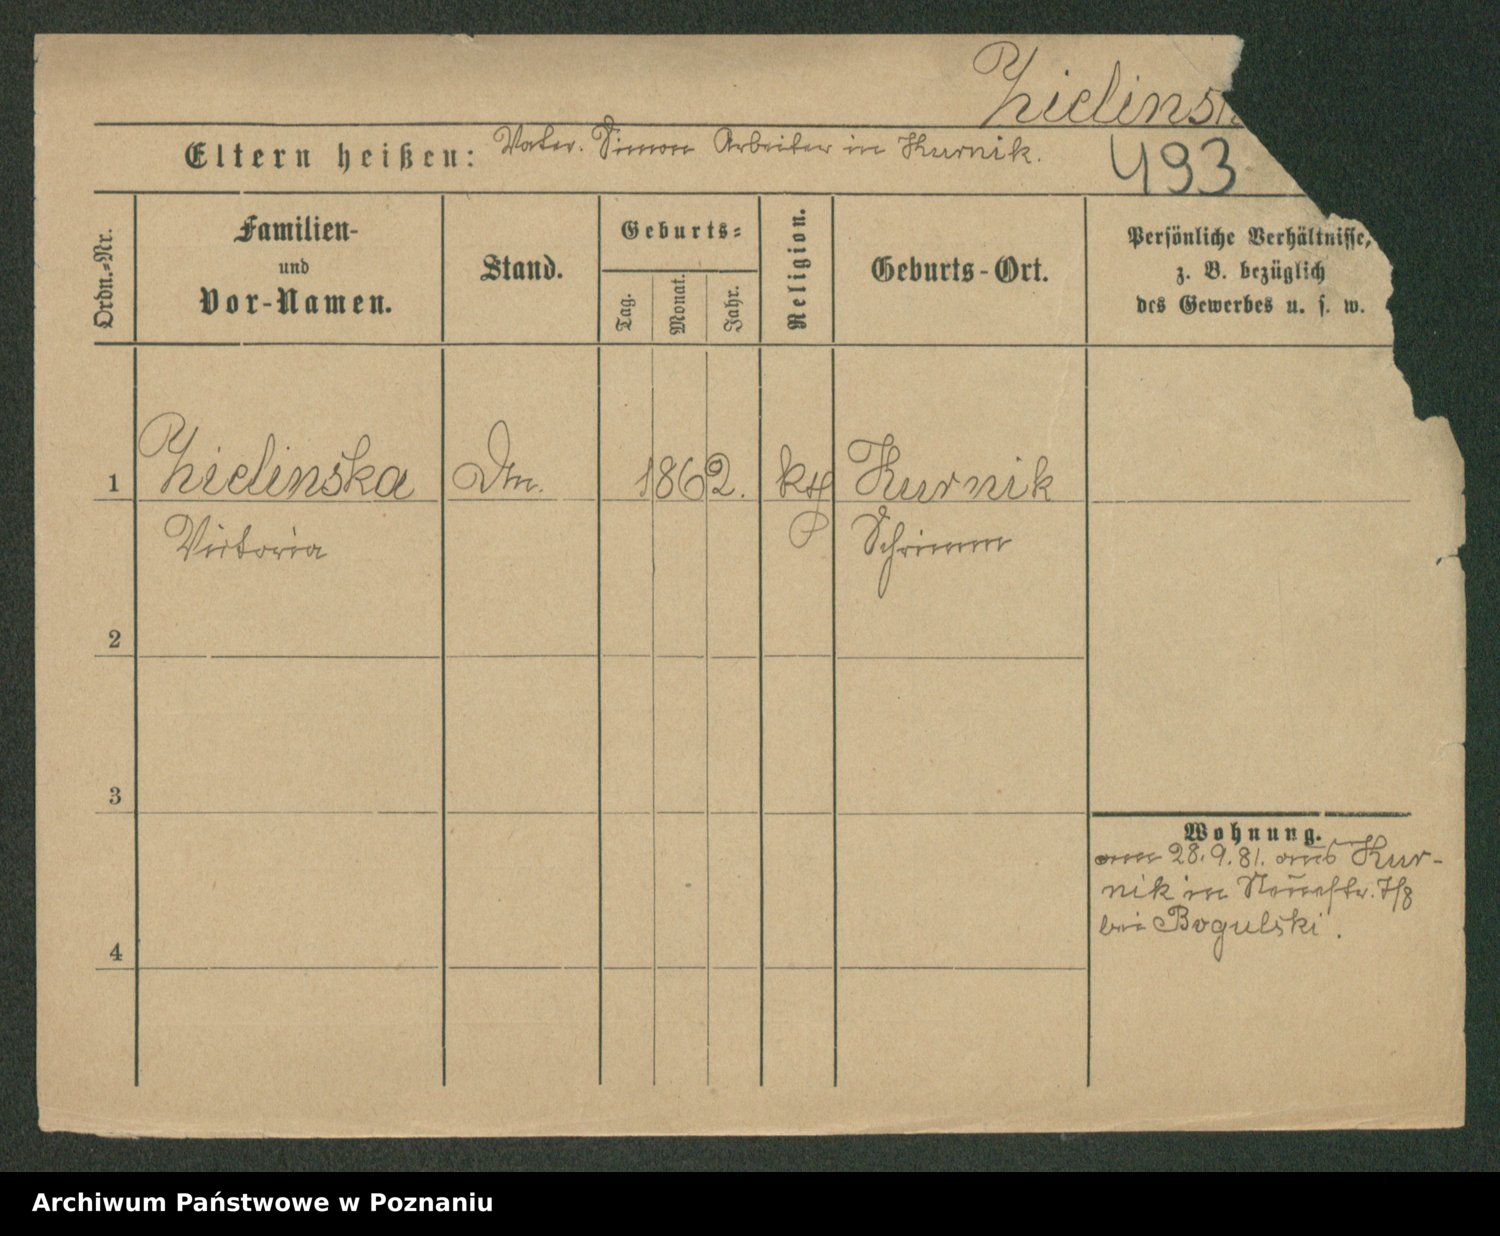 Zielins
Eltern heißen: Vater. Simon Arbeiter in Kurnik.
493
Ordn.=Nr.
Familien-
und
Vor-Namen.
Stand.
Geburts=
Tag.
Monat.
Jahr.
Religion.
Geburts-Ort.
Persönliche Verhältnisse,
z. B. bezüglich
des Gewerbes u. s. w.
1 Zielinska 1862. Kurnik
Victoria Schrimm
2
3
4
Wohnung.
am 28.9.81. aus Kur-
nik in 7/8
bei Bogulski.
Archiwum Państwowe w Poznaniu